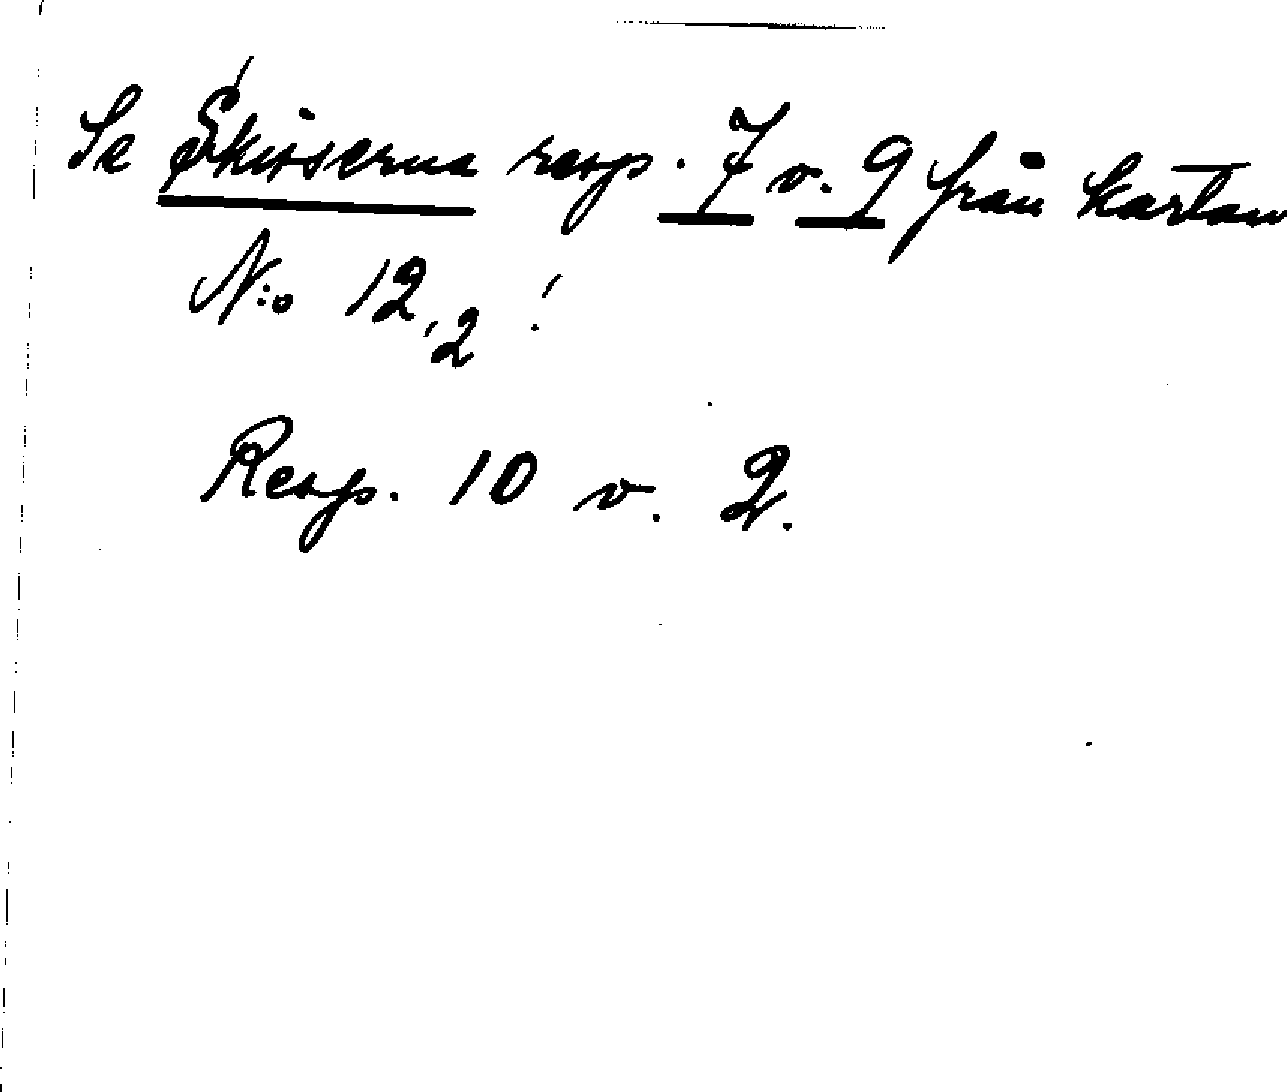 Se Skisserna resp. 7 v. 9 från kartan
N:o 12,2 !
Resp. 10 v. 2.